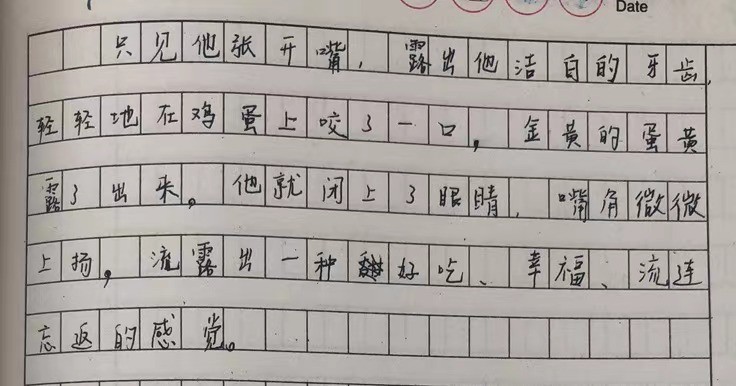 Date
只见他张开嘴，露出他洁白的牙齿，
轻轻地在鸡蛋上咬了一口，金黄的蛋黄
露了出来。他就闭上了眼睛，嘴角微微
上扬，流露出一种好吃、幸福、流连
忘返的感觉。